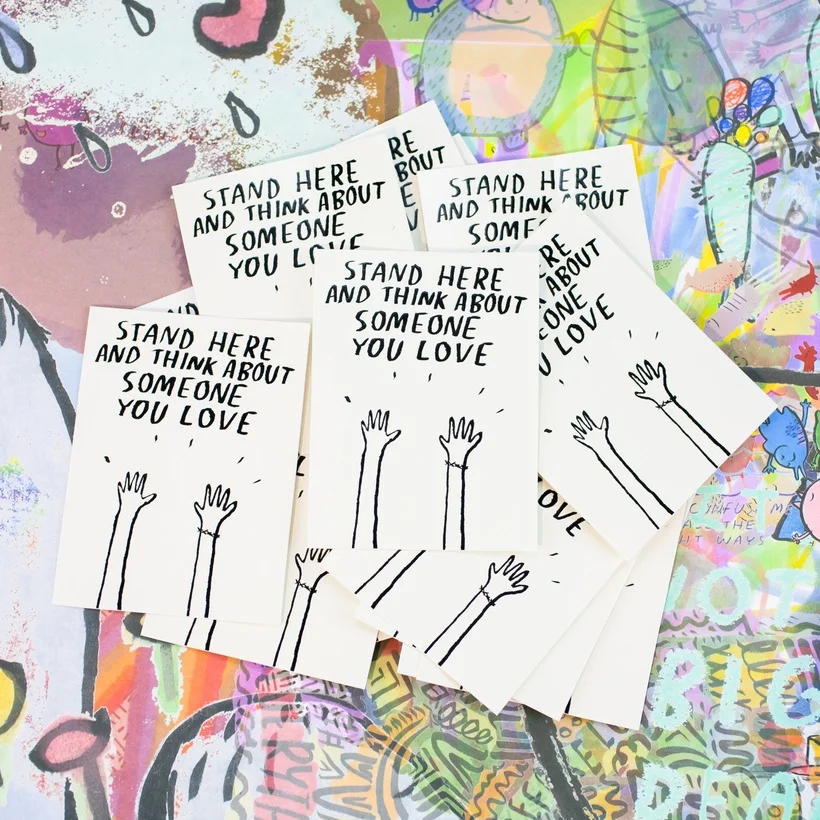 RE
BOUT
E
STAND HERE
AND THINK ABOUT
SOMEONE
YOU LOVE
STAND HERE
AND THINK ABOUT
SOME
STAND HERE
AND THINK ABOUT
SOMEONE
YOU LOVE
ERE
K ABOUT
EONE
U LOVE
STAND HERE
AND THINK ABOUT
SOMEONE
YOU LOVE
OVE
ME
THE
WAYS
BIG